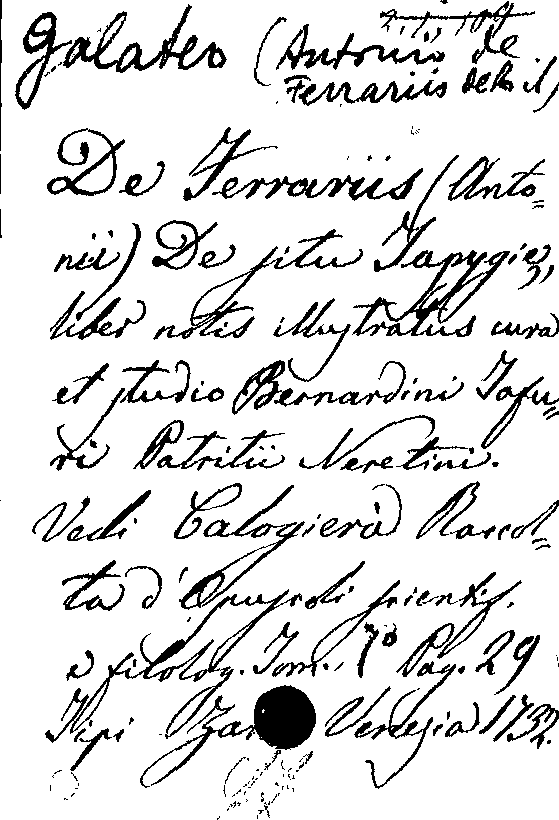 Galateo (Antonio de
Ferrariis detto il)
De Ferrariis (Anto=
nii) De situ Japygię,
liber notis illustratus cura
et studio Bernardini Tafu=
ri Patritii Neretini.
Vedi Calogierà Raccol=
ta d'Opuscoli scientif.
e filolog. Tom. 7º Pag. 29
Tipi Zan Venezia 1732.